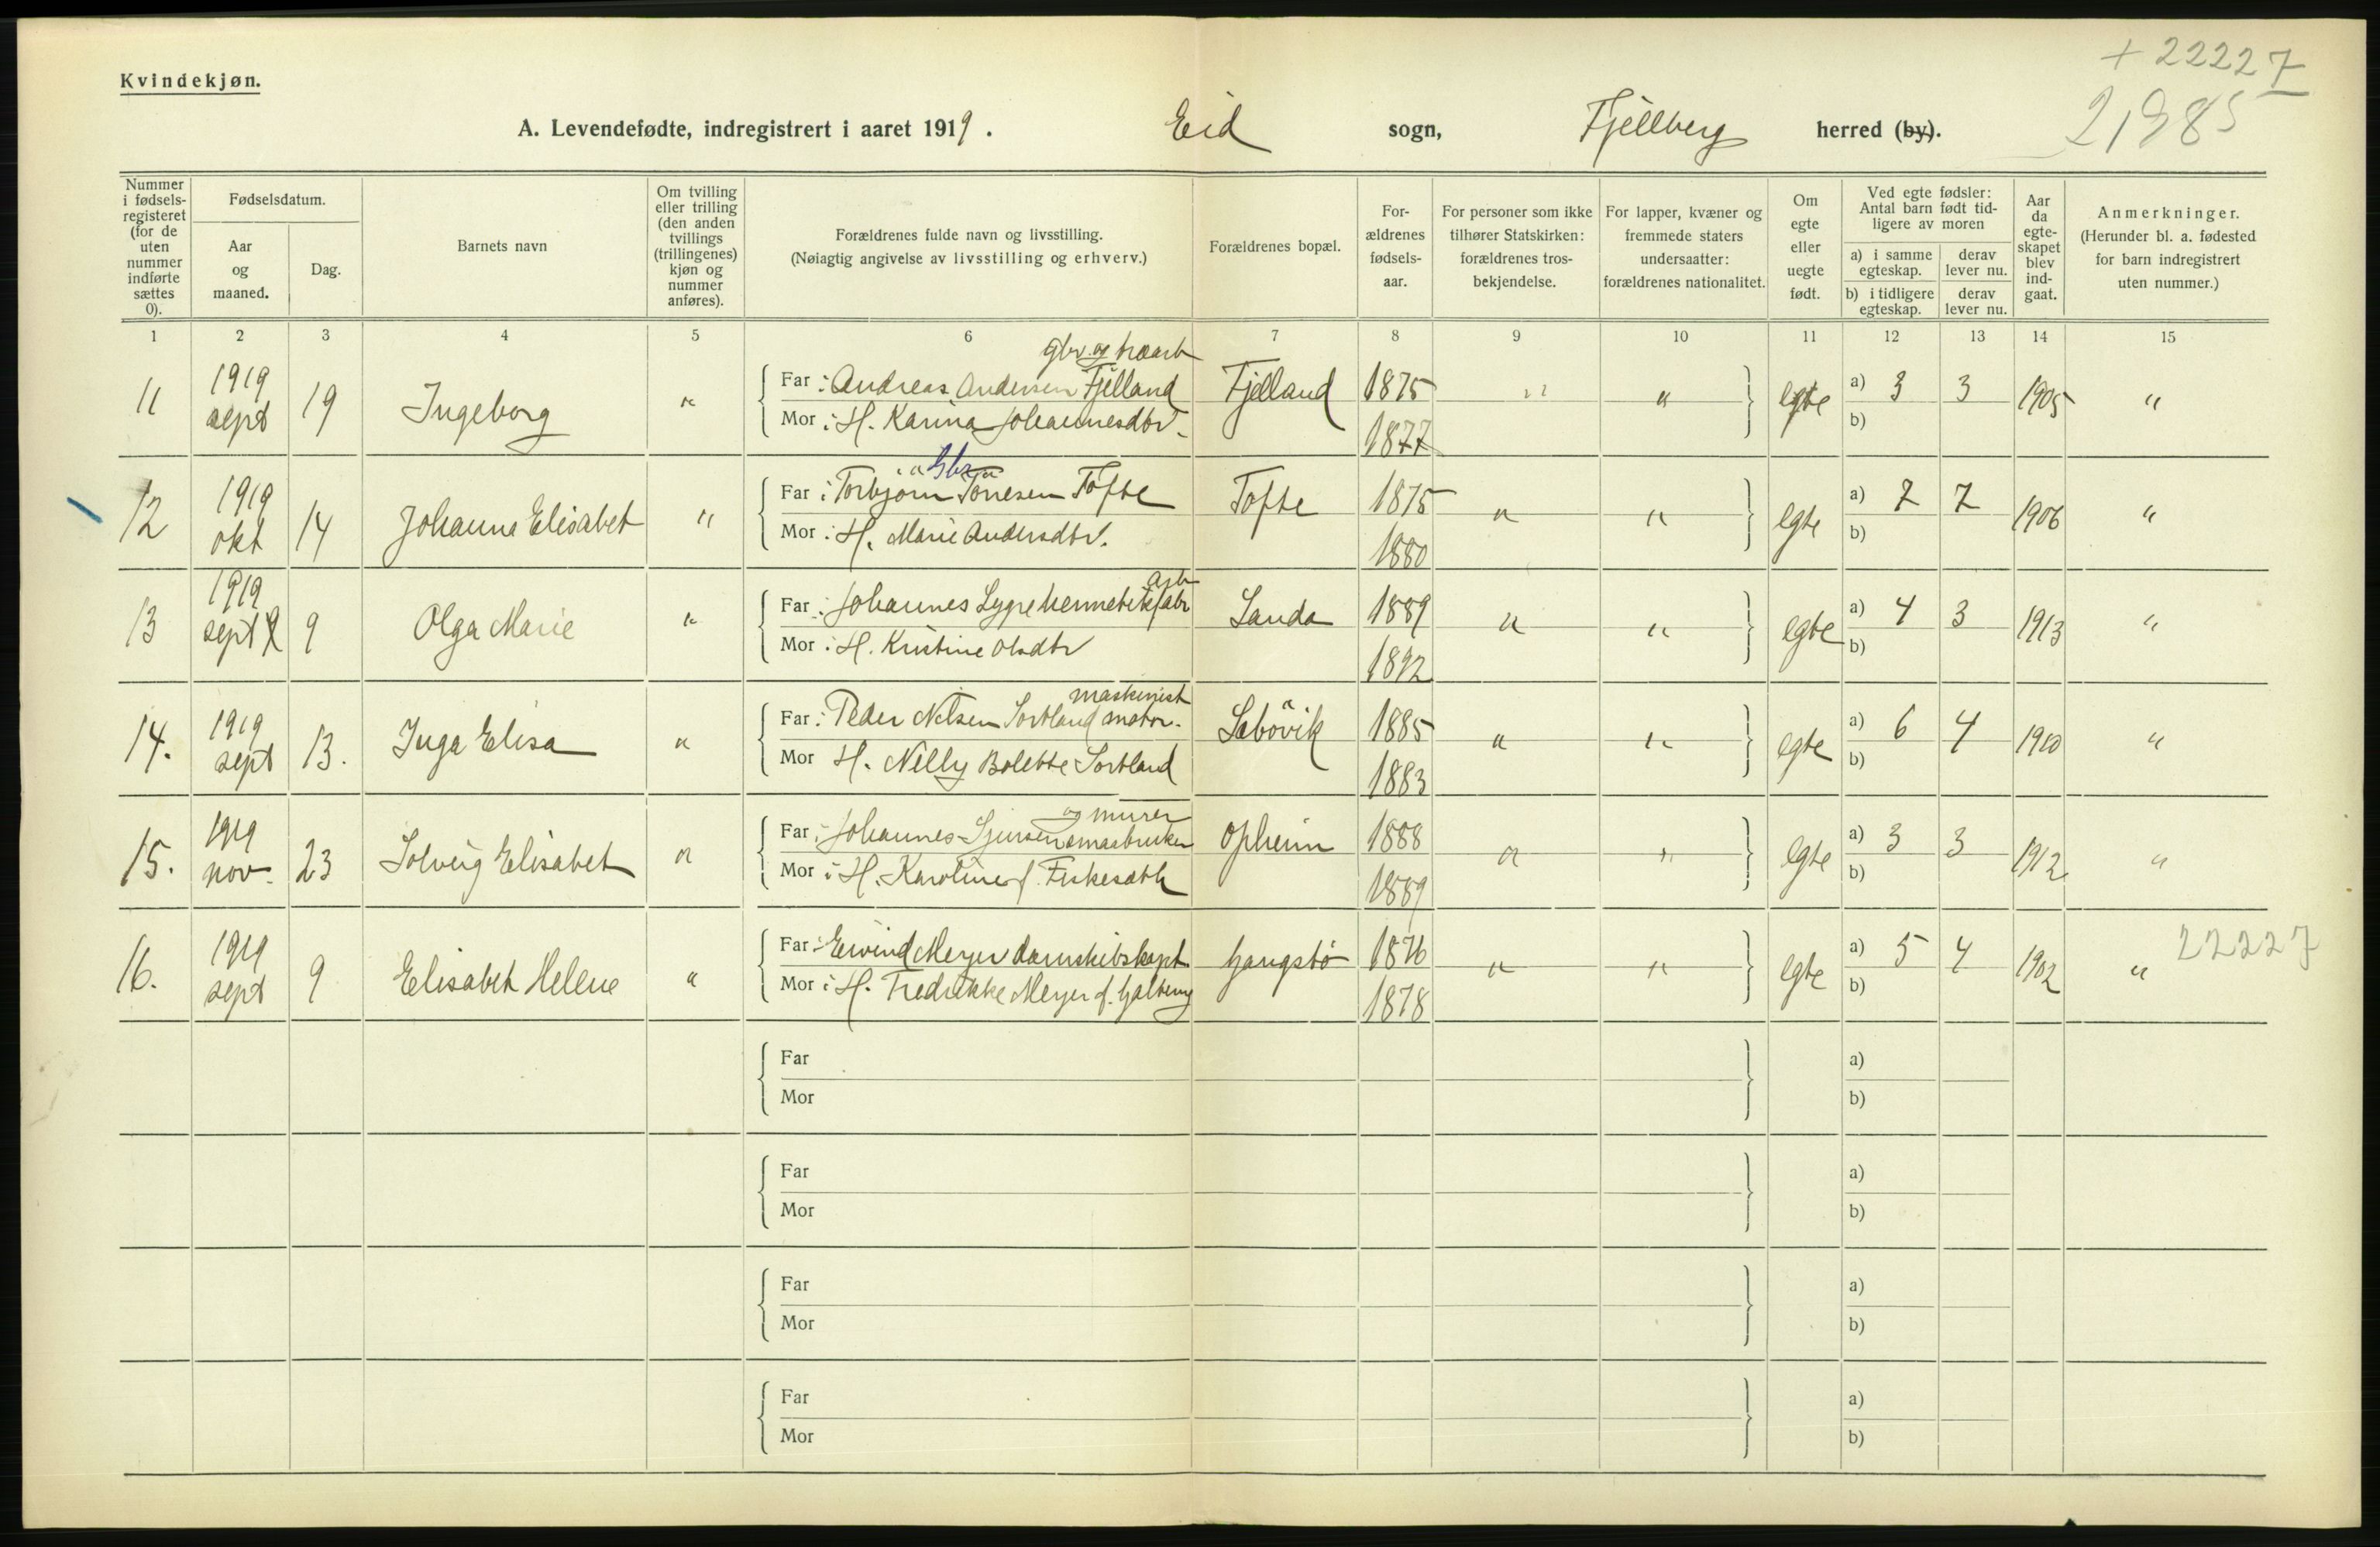 + 22227
21985
Kvindekjøn.
A. Levendefødte, indregistrert i aaret 1919. Eid sogn, Fjellberg herred (by).
Nummer i fødselsregisteret (for de uten nummer indførte sættes 0).
Fødselsdatum.
Aar og maaned.
Dag.
Barnets navn
Om tvilling eller trilling (den anden tvillings (trillingenes) kjøn og nummer anføres).
Forældrenes fulde navn og livsstilling.
(Nøiagtig angivelse av livsstilling og erhverv.)
Forældrenes bopæl.
For-ældrenes fødsels-aar.
For personer som ikke tilhører Statskirken: forældrenes tros-bekjendelse.
For lapper, kvæner og fremmede staters undersaatter: forældrenes nationalitet.
Om egte eller uegte født.
Ved egte fødsler: Antal barn født tid-ligere av moren
a) i samme egteskap. derav lever nu.
b) i tidligere egteskap. derav lever nu.
Aar da egte-skapet blev ind-gaat.
Anmerkninger.
(Herunder bl. a. fødested for barn indregistrert uten nummer.)
1 2 3 4 5 6 7 8 9 10 11 12 13 14 15
gbr. og træarb
11 1919 sept 19 Ingeborg " Far: Andreas Andersen Fjelland Fjelland 1875 " " egte a) 3 3 1905 "
Mor: H. Karina Johannesdtr. 1877 b)
Gbr
12 1919 okt 14 Johanna Elisabet " Far: Torbjørn Tørresen Tofte Tofte 1875 " " egte a) 7 7 1906 "
Mor: H. Marie Andersdtr. 1880 b)
arb
13 1919 sept 9 Olga Marie " Far: Johannes Lygre hermetikfabr Sanda 1889 " " egte a) 4 3 1913 "
Mor: H. Kristine Olsdtr 1892 b)
maskinist
14. 1919 sept 13. Inga Elisa " Far: Peder Nilsen Sortland motor. Sæbövik 1885 " " egte a) 6 4 1910 "
Mor H. Nelly Bolette Sortland 1883 b)
og murer
15. 1919 nov. 23 Solveig Elisabet " Far: Johannes Sjursen smaabruker Opheim 1888 " " egte a) 3 3 1912 "
Mor: H. Karoline f. Fiskesæth 1889 b)
22227
16. 1919 sept 9 Elisabet Helene " Far: Eivind Meyer damskibskapt Hangstö 1876 " " egte a) 5 4 1902 "
Mor: H. Fredrikke Meyer f. 1878 b)
Far a)
Mor b)
Far a)
Mor b)
Far a)
Mor b)
Far a)
Mor b)